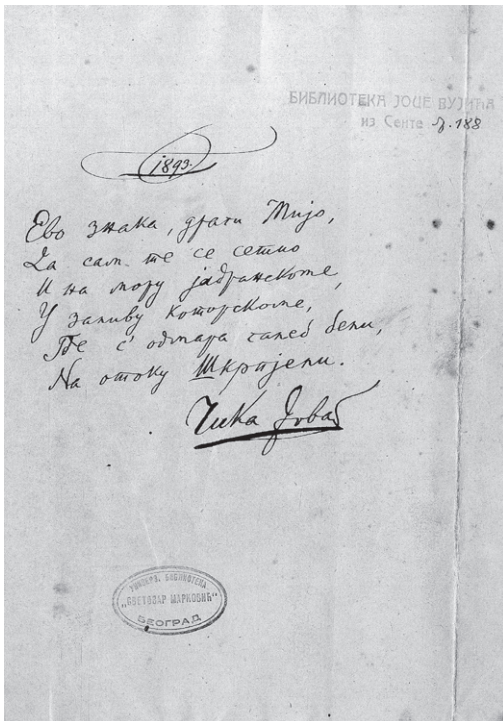 БИБЛИОТЕКА ЈОЦЕ ВУЈИЋА
из Сенте 188
1893.
Ево знака, драги Мијо,
Да сам те се сетио
И на мору јадранскоме,
У заливу Которскоме,
Где с' одмара галеб бели,
На отоку Шкрпјели.
Чика Јова
УНИВЕРЗ. БИБЛИОТЕКА
„СВЕТОЗАР МАРКОВИЋ“
БЕОГРАД